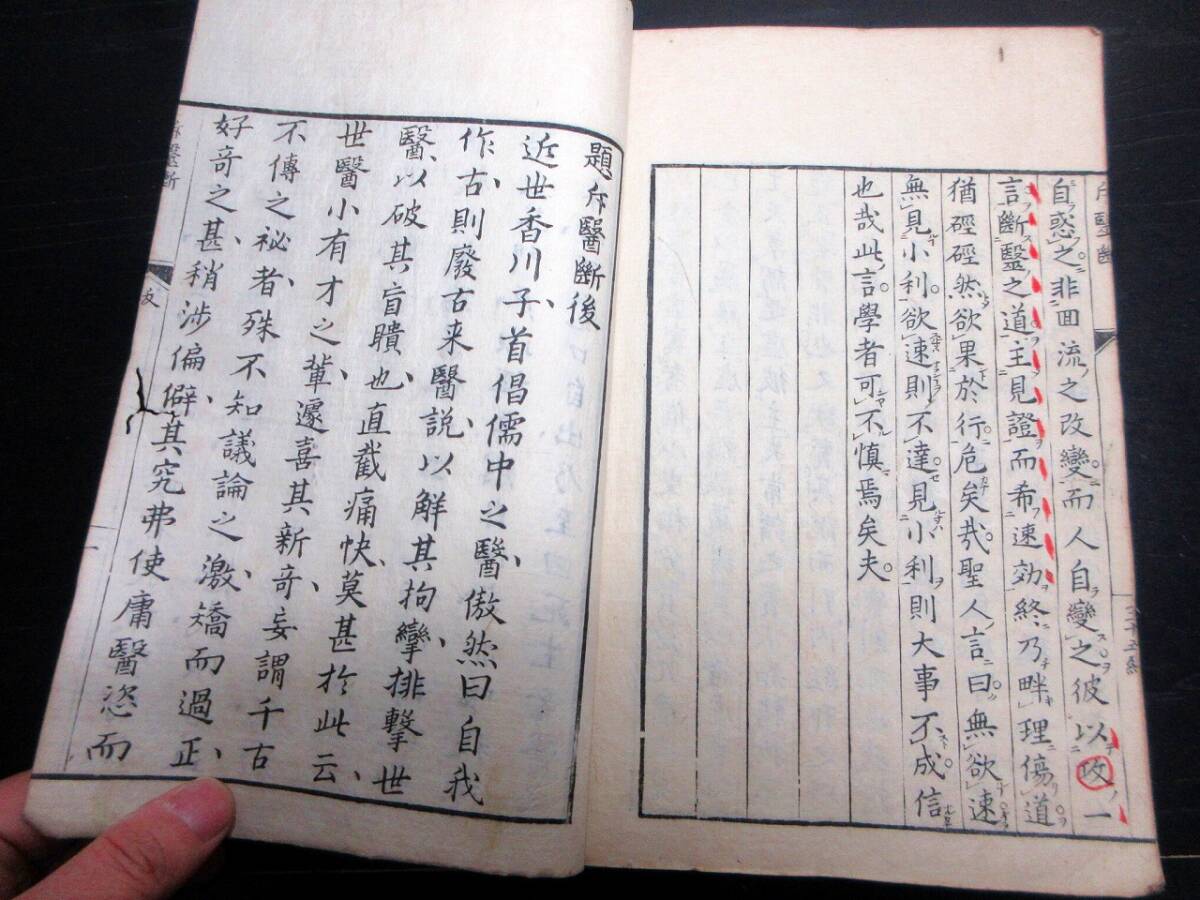 斥醫斷
自惑之非面流之改變而人自變之彼以攻一
言斷毉之道主見證而希速効終乃畔理傷道
猶硜硜然欲果於行危矣哉聖人言曰無欲速
無見小利欲速則不達見小利則大事不成信
也哉此言學者可不慎焉矣夫
題斥醫斷後
近世香川子首倡儒中之醫傲然曰自我
作古則廢古来醫説以解其拘攣排擊世
醫以破其盲瞶也直截痛快莫甚於此云
世醫小有才之輩遽喜其新奇妄謂千古
不傳之祕者殊不知議論之激矯而過正
好奇之甚稍涉偏僻其究弗使庸醫恣而
跋